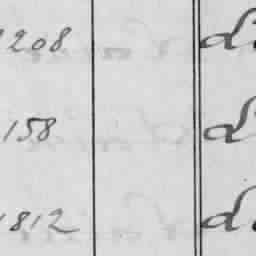 1208 d
158 d
1812 d